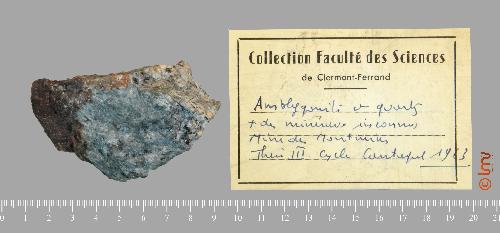 Collection Faculté des Sciences
de Clermont-Ferrand
Amblygonite et quartz
+ des minéraux inconnus
Mine de Montmins
Thèse III Cycle 1963
© lmv
0 1 2 3 4 5 6 7 8 9 10 11 12 13 14 15 16 17 18 19 20 21